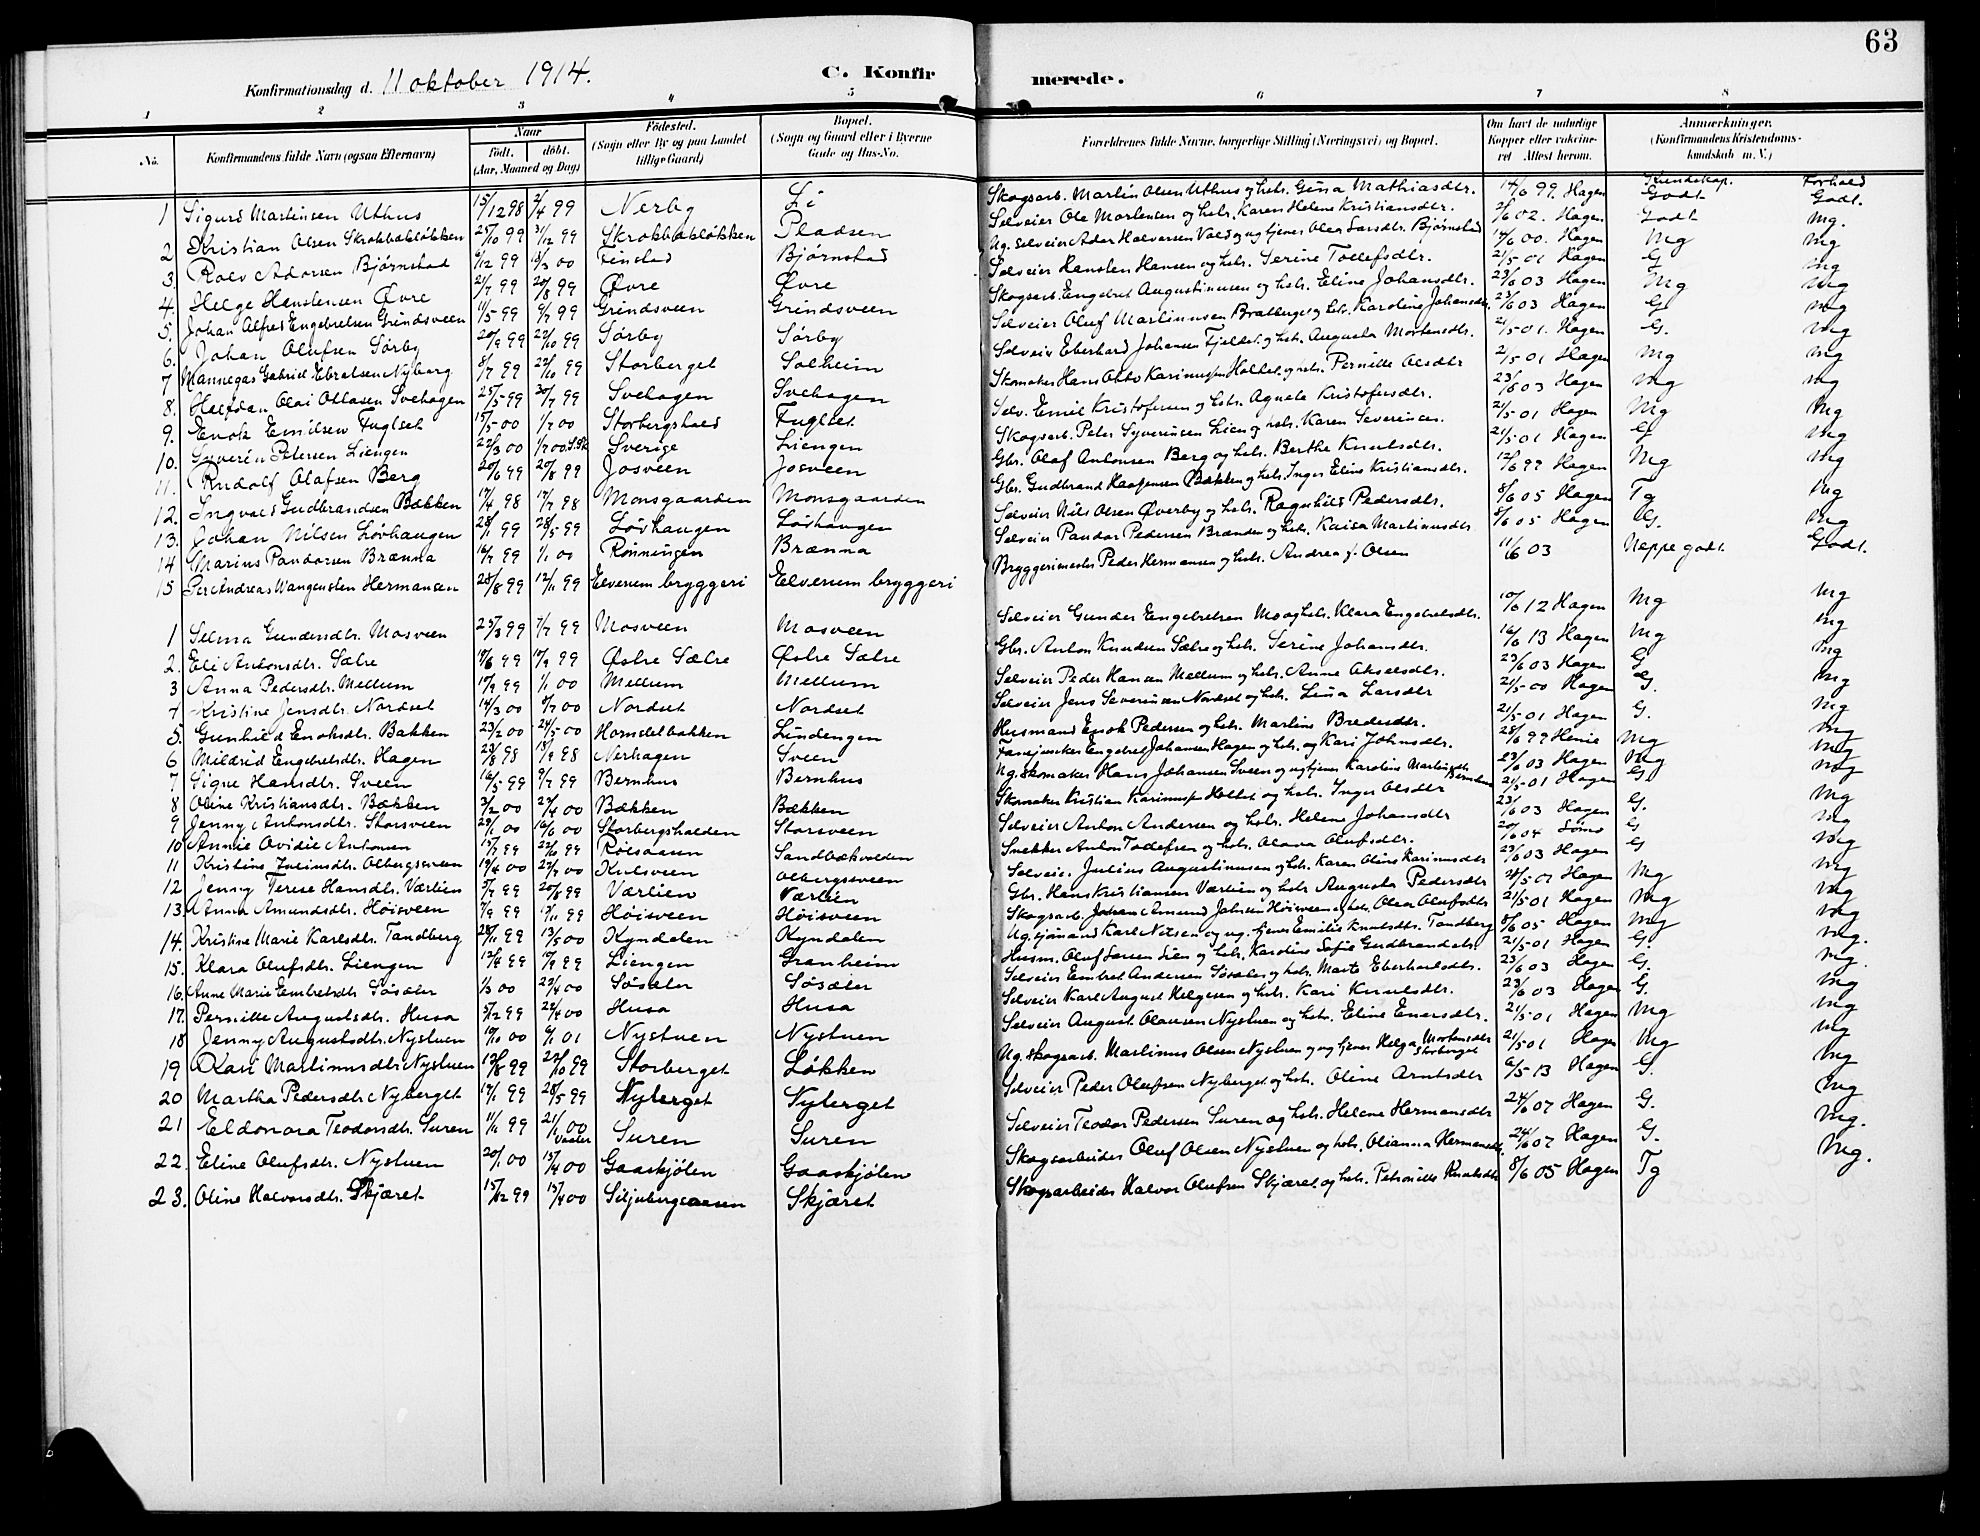 63
Konfirmationsdag d. 11 oktober 1914.
C. Konfirmerede.
1 2 3 4 5 6 7 8
No.
Konfirmandens fulde Navn (ogsaa Efternavn)
Naar
født. døbt.
(Aar, Maaned og Dag)
Fødested.
(Sogn eller By og paa Landet tillige Gaard)
Bopæl.
(Sogn og Gaard eller i Byerne Gade og Hus-No.
Forældrenes fulde Navne, borgerlige Stilling (Næringsvei) og Bopæl.
Om havt de naturlige Kopper eller vaksineret. Attest herom.
Anmærkninger.
(Konfirmandens Kristendomskundskab m. V.)
Kundskap. Forhold
1 Sigurd Martinsen Uthus 15/12 98 2/4 99 Nerby Li Skogsarb. Martin Olsen Uthus og hstr. Gina Mathiasdtr. 14/6 99. Hagen Godt Godt.
2 Kristian Olsen Skrokbækløkken 25/10 99 31/12 99 Skrokbækløkken Pladsen Selveier Ole Mortensen og hstr. Karen Helene Kristiansdtr. 2/6 02. Hagen Godt Mg.
3 Rolv Adorsen Bjørnstad 6/12 99 18/3 00 Finstad Bjørnstad Ug. selveier Ador Halvorsen Vold og ug tjener Olea Larsdtr. Bjørnstad 14/6 00. Hagen Mg Mg
4. Helge Hanstensen Øvre 21/7 99 20/8 99 Øvre Øvre Selveier Hansten Hansen og hstr. Serine Tollefsdtr. 21/5 01 Hagen G Mg
5. Johan Alfred Engebretsen Grindsveen 11/5 99 9/7 99 Grindsveen Grindsveen Skogsarb. Engebret Augustinussen og hstr. Eline Johansdtr. 23/6 03 Hagen Mg Mg
6. Johan Olufsen Sørby 20/9 99 22/10 99 Sørby Sørby Selveier Oluf Martinusen Bratberget og hstr. Karoline Johansdtr. 23/6 03 Hagen G Mg
7 Mannegas Gabriel Ebretsen Nyborg 8/7 99 22/10 99 Storberget Solheim Selveier Eberhard Johansen Fjeldet og hstr. Augusta Mortensdtr. 21/5 01. Hagen G. Mg
8. Halfdan Olai Ottosen Svehagen 25/5 99 30/7 99 Svehagen Svehagen Skomaker Hans Otto Karinusen Holtet og hstr. Pernille Olsdtr 21/5 01 Hagen Mg Mg
9. Enok Emilsen Fuglset 15/5 00 1/7 00 Storbergshold Fuglset Selv. Emil Kristofersen og hstr. Agnete Kristofersdtr. 23/6 03 Hagen Mg Mg
10. Syverin Petersen Liengen 22/3 00 1/7 00 Sverige Liengen Skogsarb. Peter Syverinsen Lien og hstr. Karen Severinsen 21/5 01 Hagen Mg Mg
11. Rudolf Olafsen Berg 20/6 99 20/8 99 Josveen Josveen Gbr. Olaf Antonsen Berg og hstr. Berthe Knutsdtr. 21/5 01 Hagen G Mg
12. Ingvald Gudbrandsen Bækken 17/4 98 17/7 98 Monsgaarden Monsgaarden Gbr. Gudbrand Kaspersen Bækken og hstr. Inger Eline Kristiansdtr. 12/6 99 Hagen Mg Mg
13. Johan Nilsen Lövhaugen 28/1 99 28/5 99 Lövhaugen Lövhaugen Selveier Nils Olsen Øverby og hstr. Ragnhild Pedersdtr. 8/6 05 Hagen Tg Mg
14 Marius Pandorsen Brænna 16/7 99 1/1 00 Rønningen Brænna Selveier Pandor Pedersen Brænden og hstr. Kaisa Martinusdtr 8/6 05 Hagen G. Mg
15 Per Andreas Wangensten Hermansen 28/8 99 12/11 99 Elverum bryggeri Elverum bryggeri Bryggerimester Peder Hermansen og hstr. Andrea f. Olsen 11/6 03 Neppe godt. Godt.
1 Selma Gundersdtr. Mosveen 25/3 99 7/7 99 Mosveen Mosveen Selveier Gunder Engebretsen Mo og hstr. Klara Engebretsdtr. 10/6 12 Hagen Mg Mg
2. Eli Antonsdtr. Sætre 19/6 99 17/9 99 Østre Sætre Østre Sætre Gbr. Anton Knudsen Sætre og hstr. Serine Johansdtr. 16/6 13 Hagen Mg Mg
3 Anna Pedersdtr. Mellum 17/9 99 1/1 00 Mellum Mellum Selveier Peder Hansen Mellum og hstr. Anne Akselsdtr. 23/6 03 Hagen G Mg
4 Kristine Jensdtr. Nordset 14/3 00 8/7 00 Nordset Nordset Selveier Jens Severinsen Nordset og hstr. Lina Larsdtr 21/5 00 Hagen G. Mg
5. Gunhild Enoksdtr. Bakken 23/2 00 24/5 00 Hornsletbakken Lindengen Husmand Enok Pedersen og hstr. Martine Bredesdtr. 21/5 01 Hagen G. Mg
6 Mildrid Engebretsdtr. Hagen 23/8 98 18/9 98 Nerhagen Sveen Engebret Johansen Hagen og hstr. Kari Johnsdtr. 28/6 99 Mg Mg
7 Signe Hansdtr. Sveen 16/5 99 9/7 99 Bernhus Bernhus Ug. skomaker Hans Johansen Sveen og ug tjener Karoline Martinsdtr Bernhus 23/6 03 Hagen Mg Mg
8 Oline Kristiansdtr. Bækken 3/2 00 29/4 00 Bækken Bækken Skomaker Kristian Karinusen Holtet og hstr. Inger Olsdtr 21/5 01 Hagen G. Mg
9 Jenny Antonsdtr. Storsveen 29/1 00 16/6 00 Storbergsholden Storsveen Selveier Anton Andersen og hstr. Helene Johansdtr 23/6 03 Hagen G. Mg
10 Annie Ovidie Antonsen 15/7 99 22/10 99 Roisaasen Sandbækvolden Snekker Anton Tollefsen og hstr. Olava Olufsdtr. 20/6 04 G Mg
11 Kristine Juliusdtr. Olbergsveen 19/4 00 22/7 00 Kulsveen Olbergsveen Selveier Julius Augustinussen og hstr. Karen Oline Karinusdtr 23/6 03 Hagen G Mg
12 Jenny Terese Hansdtr. Værlien 5/7 99 20/8 99 Værlien Værlien Gbr. Hans Kristiansen Værlien og hstr Augusta Pedersdtr 28/5 07 Hagen Mg Mg
13. Anna Amundsdtr. Høisveen 7/9 99 19/11 99 Høisveen Høisveen Skogsarb. Amund Johnsen Høisveen og hstr. Olea Olufsdtr 21/5 01 Hagen Mg Mg
14. Kristine Marie Karlsdtr. Tandberg 28/11 99 13/5 00 Kyndalen Kyndalen Ug. sjømand Karl Nilsen og ug. tjener Emilie Knutsdtr. Tandberg 8/6 05 Hagen Mg Mg
15. Klara Olufsdtr. Liengen 12/4 99 17/9 99 Liengen Granheim Husm. Oluf Larsen Lien og hstr. Karoline Sofie Gudbrandsdtr 21/5 01 Hagen G. Mg.
16. Anne Marie Embretsdtr Søsæter 1/3 00 22/4 00 Søsæter Søsæter Selveier Embret Andersen Søsæter og hstr. Marte Eberhardsdtr. 23/6 03 Hagen G. Mg.
17. Pernille Augustsdtr. Husa 5/12 99 22/4 00 Husa Husa Selveier Karl August Helgesen og hstr. Kari Knutsdtr. 23/6 03 Hagen G. Mg
18 Jenny Augustsdtr. Nystuen 19/10 00 6/1 01 Nystuen Nystuen Selveier August Olausen Nystuen og hstr. Eline Enersdtr. 21/5 01 Hagen Mg Mg
19 Kari Martinusdtr Nystuen 13/8 99 22/10 99 Storberget Løkken Ug. skogsarb. Martinus Olsen Nystuen og ug tjener Helga Mortensdtr Storberget 21/5 01 Hagen Mg Mg
20 Martha Pedersdtr. Nyberget 17/1 99 28/5 99 Nyberget Nyberget Selveier Peder Olufsen Nyberget og hstr. Oline Arntsdtr 6/5 13 Hagen G. Mg
21 Eldonora Teodorsdtr. Suren 11/11 99 21/1 00 Vaaler Suren Suren Selveier Teodor Pedersen Suren og hstr. Helene Hermansdtr 24/6 07 Hagen G. Mg
22. Eline Olufsdtr. Nystuen 20/1 00 15/4 00 Gaaskjølen Gaaskjølen Skogsarbeider Oluf Olsen Nystuen og hstr. Olianna Hermansdtr. 24/6 07 Hagen G. Mg.
23. Oline Halvorsdtr. Skjæret 15/12 99 15/4 00 Siljubergsaasen Skjæret Skogsarbeider Halvor Olufsen Skjæret og hstr. Petronille Knutsdtr 8/6 05 Hagen Tg Mg.